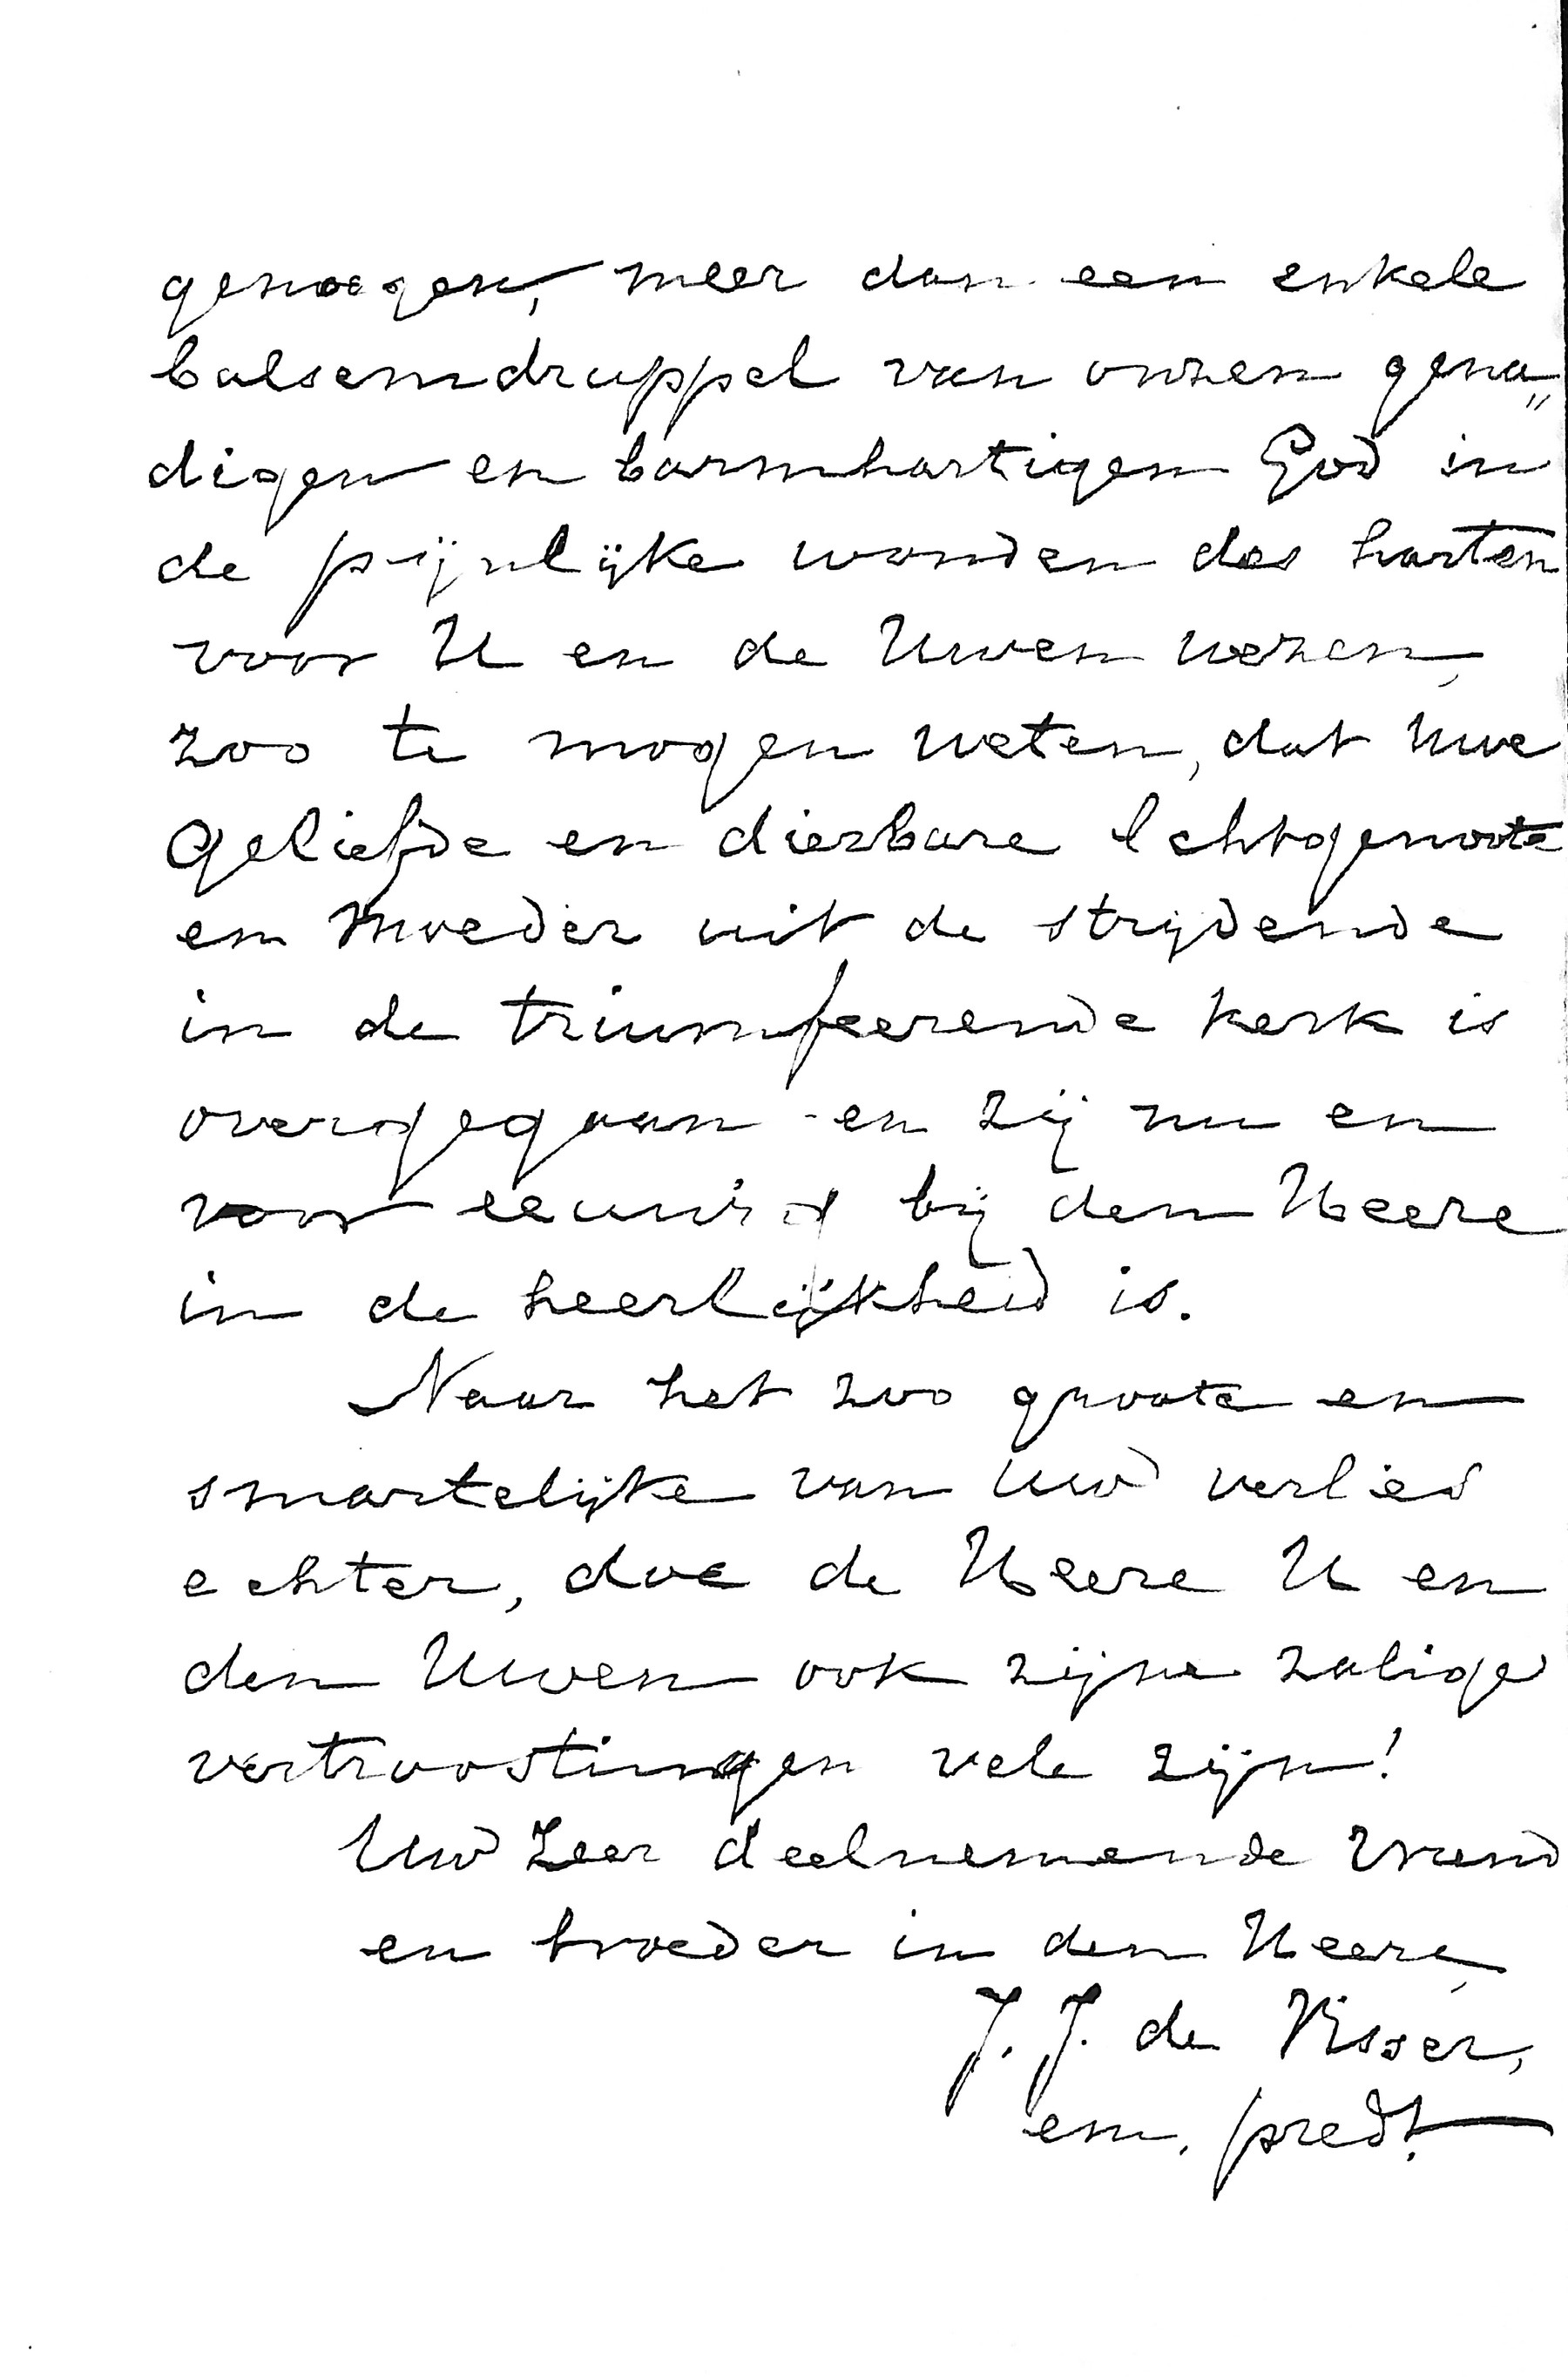 genoegen, meer dan een enkele
balsemdruppel van onzen gena„
digen en barmhartigen God in
de pijnlijke wonden des harten
voor U en de Uwen wezen,
zoo te mogen weten, dat Uwe
geliefde en dierbare Echtgenoote
en Moeder uit de strijdende
in de triumfeerende kerk is
overgegaan en zij nu en
voor eeuwig bij den Heere
in de heerlijkheid is.
Naar het zoo groote en
smartelijke van Uw verlies
echter, doe de Heere U en
den Uwen ook zijne zalige
vertroostingen vele zijn!
Uw Zeer deelnemende Vriend
en broeder in den Heere,
J. J. de Visser,
em. predt.